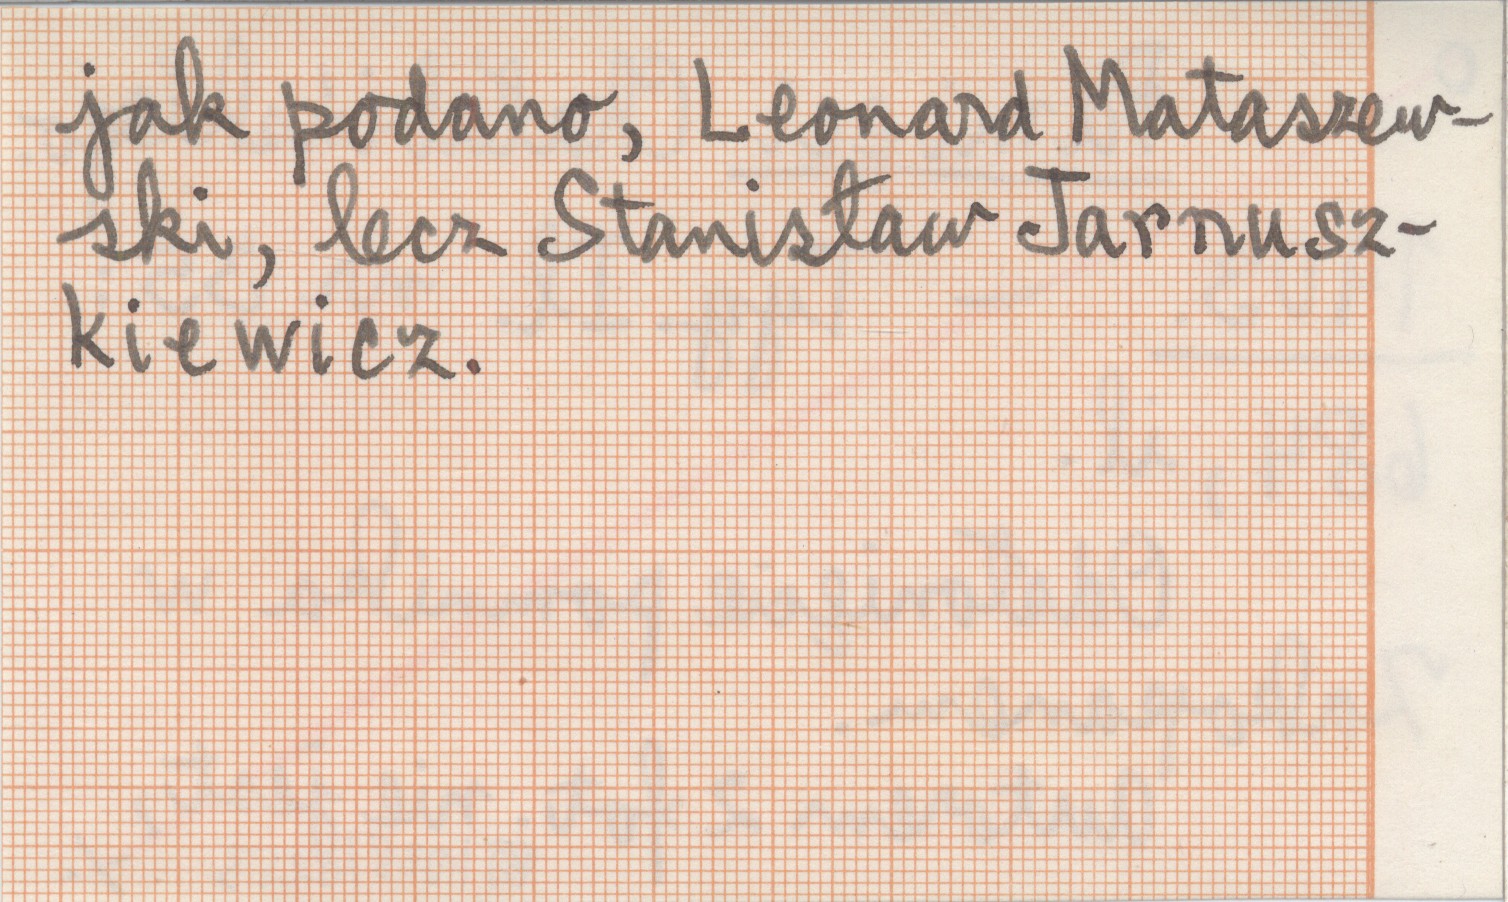 jak podano, Leonard Mataszew-
ski, lecz Stanisław Jarnusz-
kiewicz.